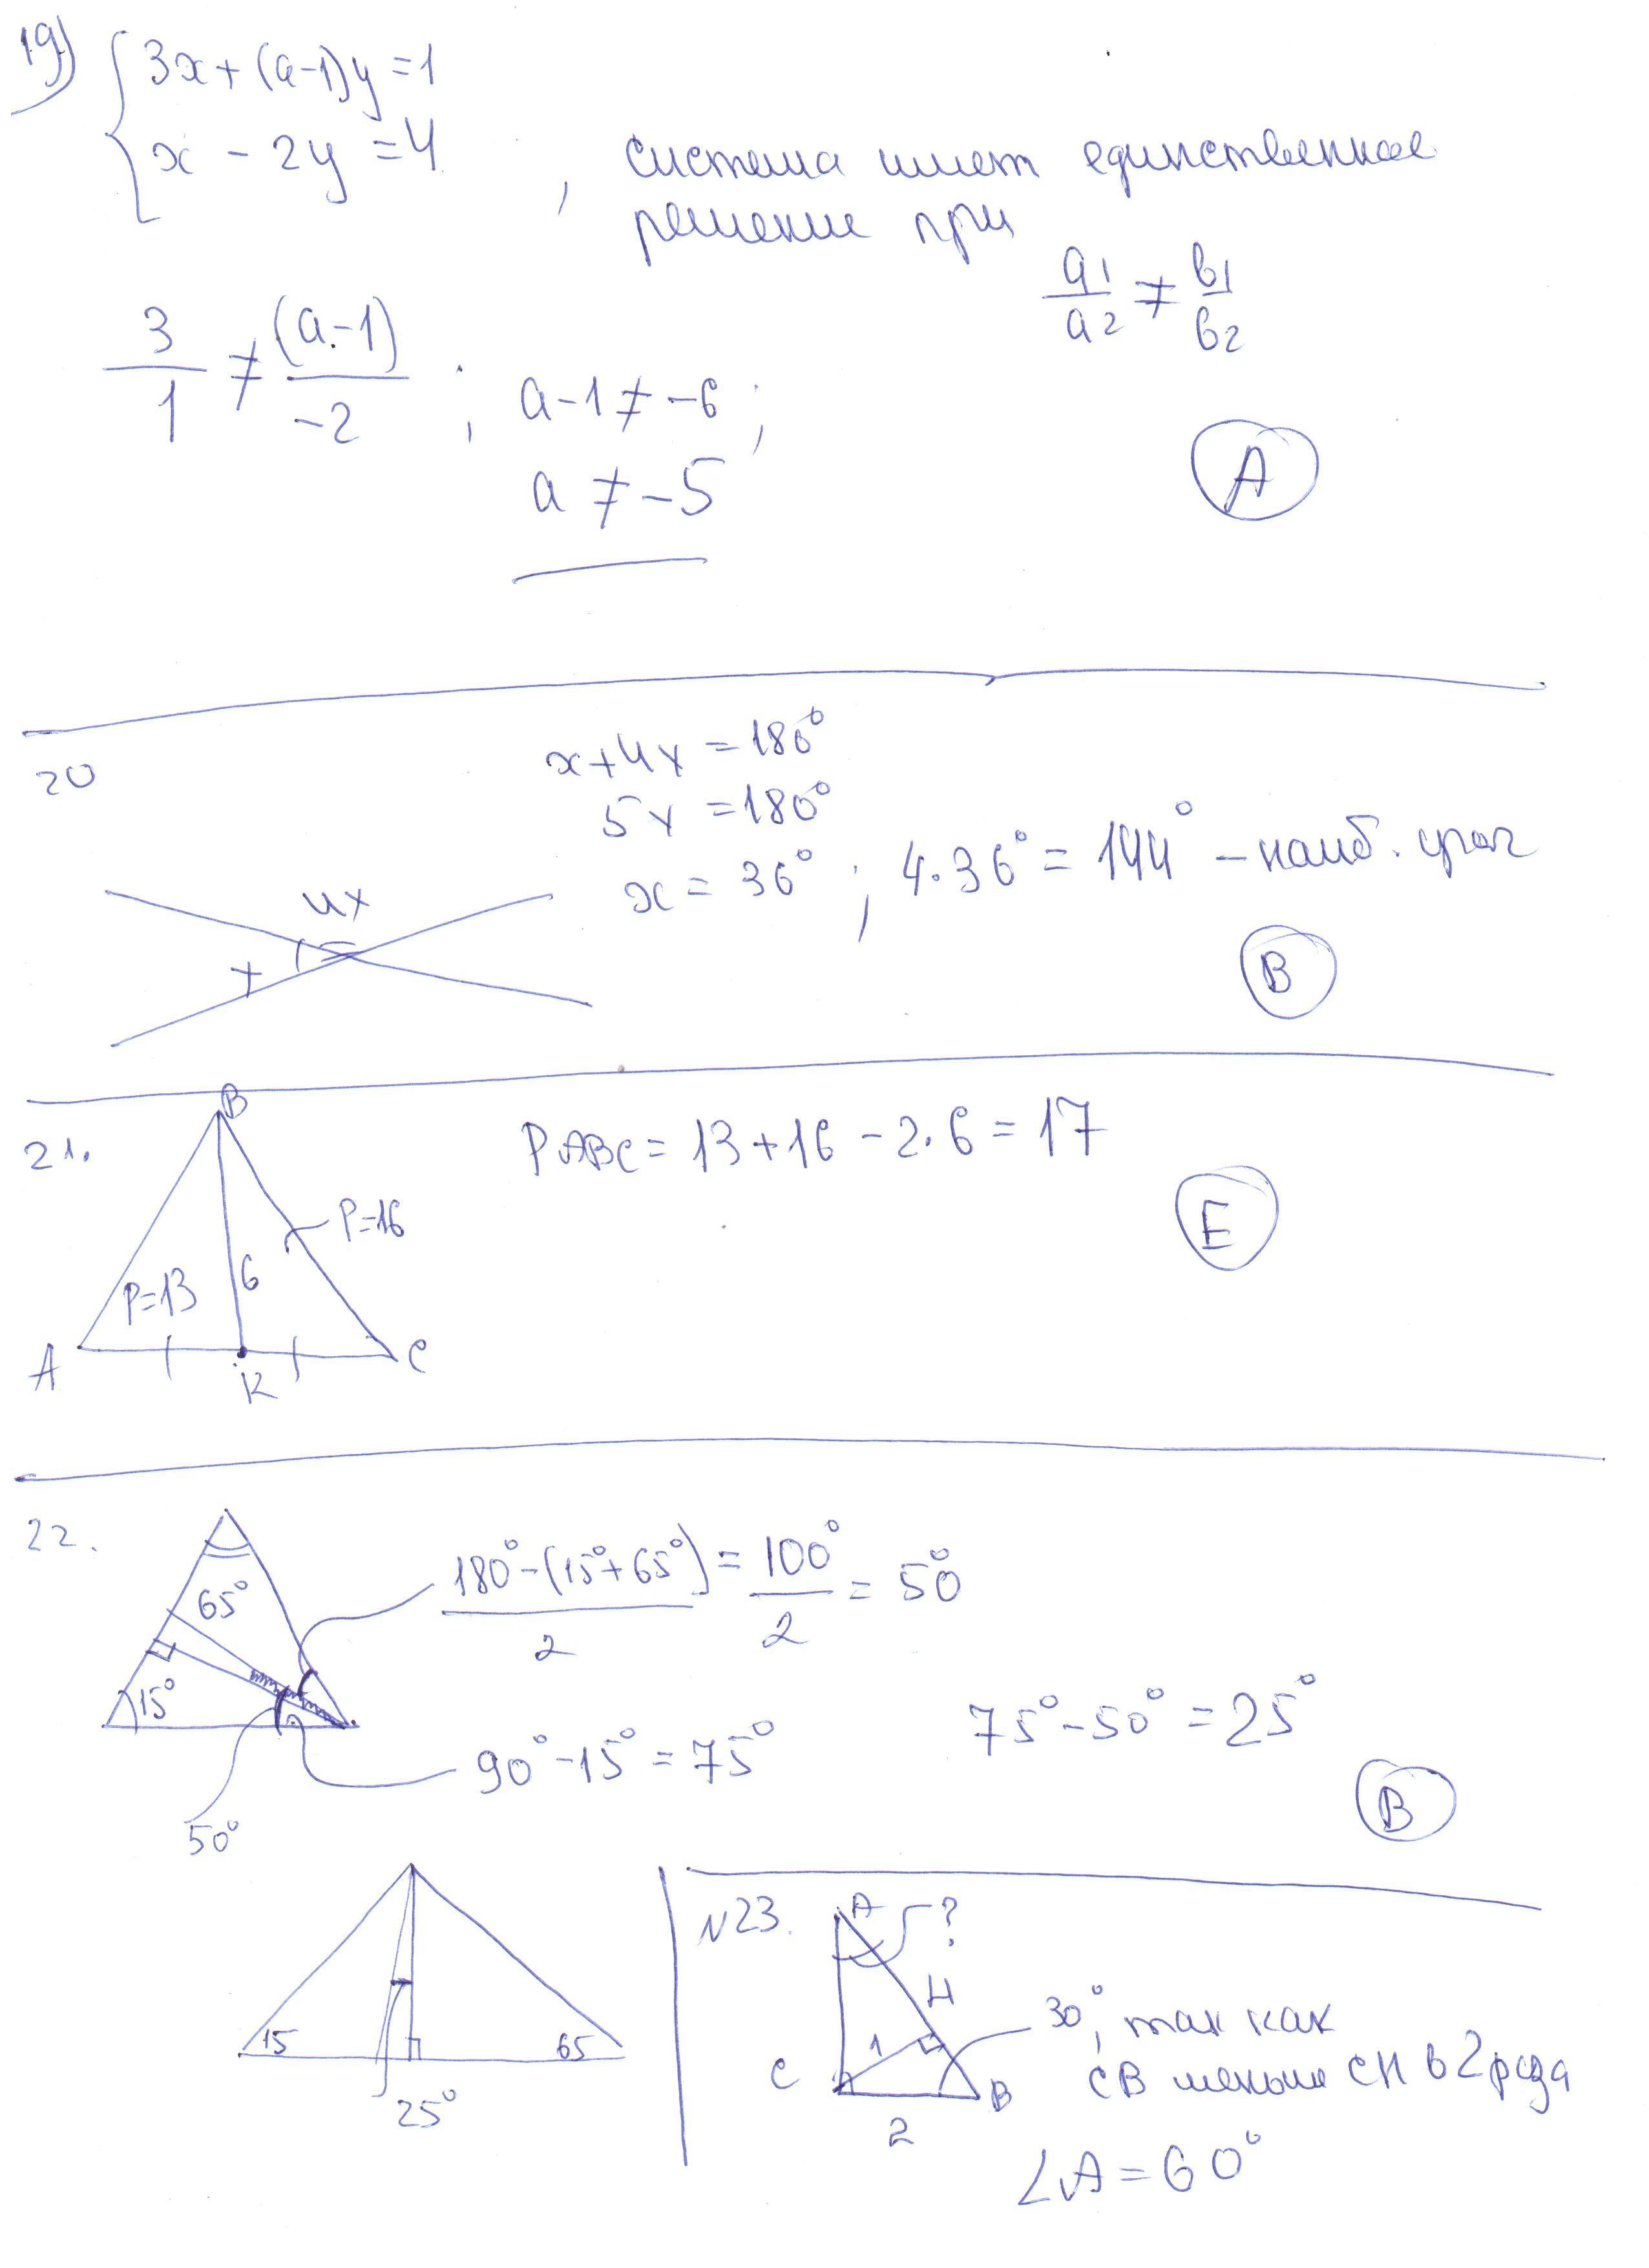 19)
3x + (a-1)y = 1
x - 2y = 4
, система имеет единственное
решение при
a1/a2 ≠ b1/b2
3/1 ≠ (a-1)/-2 ; a-1 ≠ -6 ;
a ≠ -5
A
20
x+4x = 180°
5x = 180°
x = 36° ; 4·36° = 144° – наиб. угол
4x
x
B
21.
B
P=16
P=13
6
A
K
C
P ABC = 13+16 - 2·6 = 17
E
22.
65°
15°
(180°-(15°+65°))/2 = 100°/2 = 50°
90°-15° = 75°
50°
75°-50° = 25°
B
15
65
25°
N23.
A
?
H
1
C
B
2
30°, так как
CB меньше CH в 2 раза
∠A = 60°